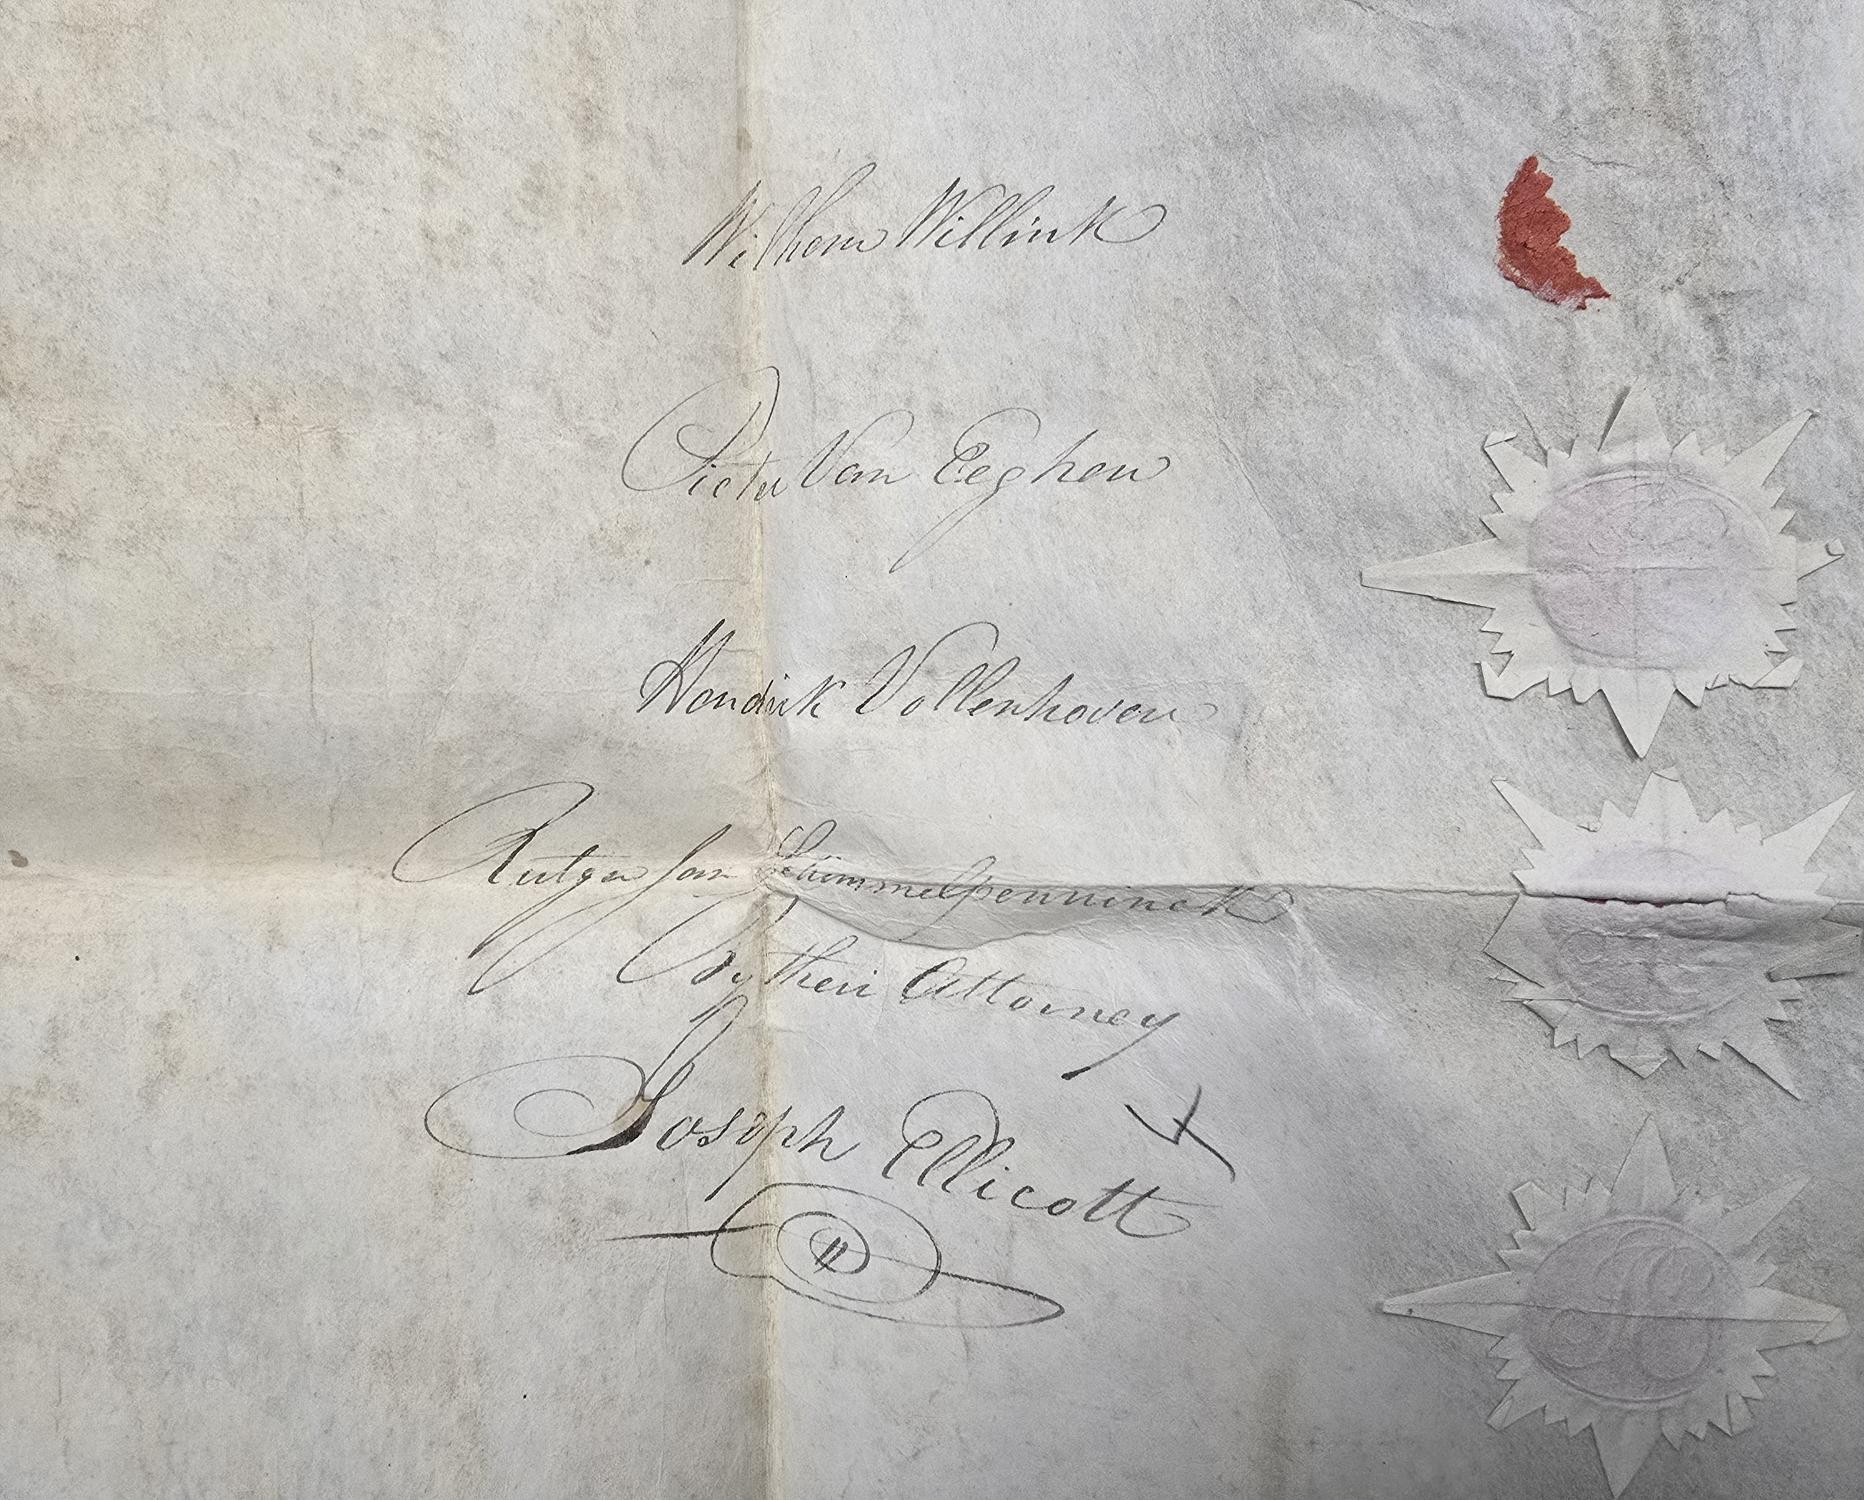 Wilhem Willink
Pieter Van Eeghen
Hendrik Vollenhoven
Rutger Jan Schimmelpenninck
By their Attorney
Joseph Ellicott